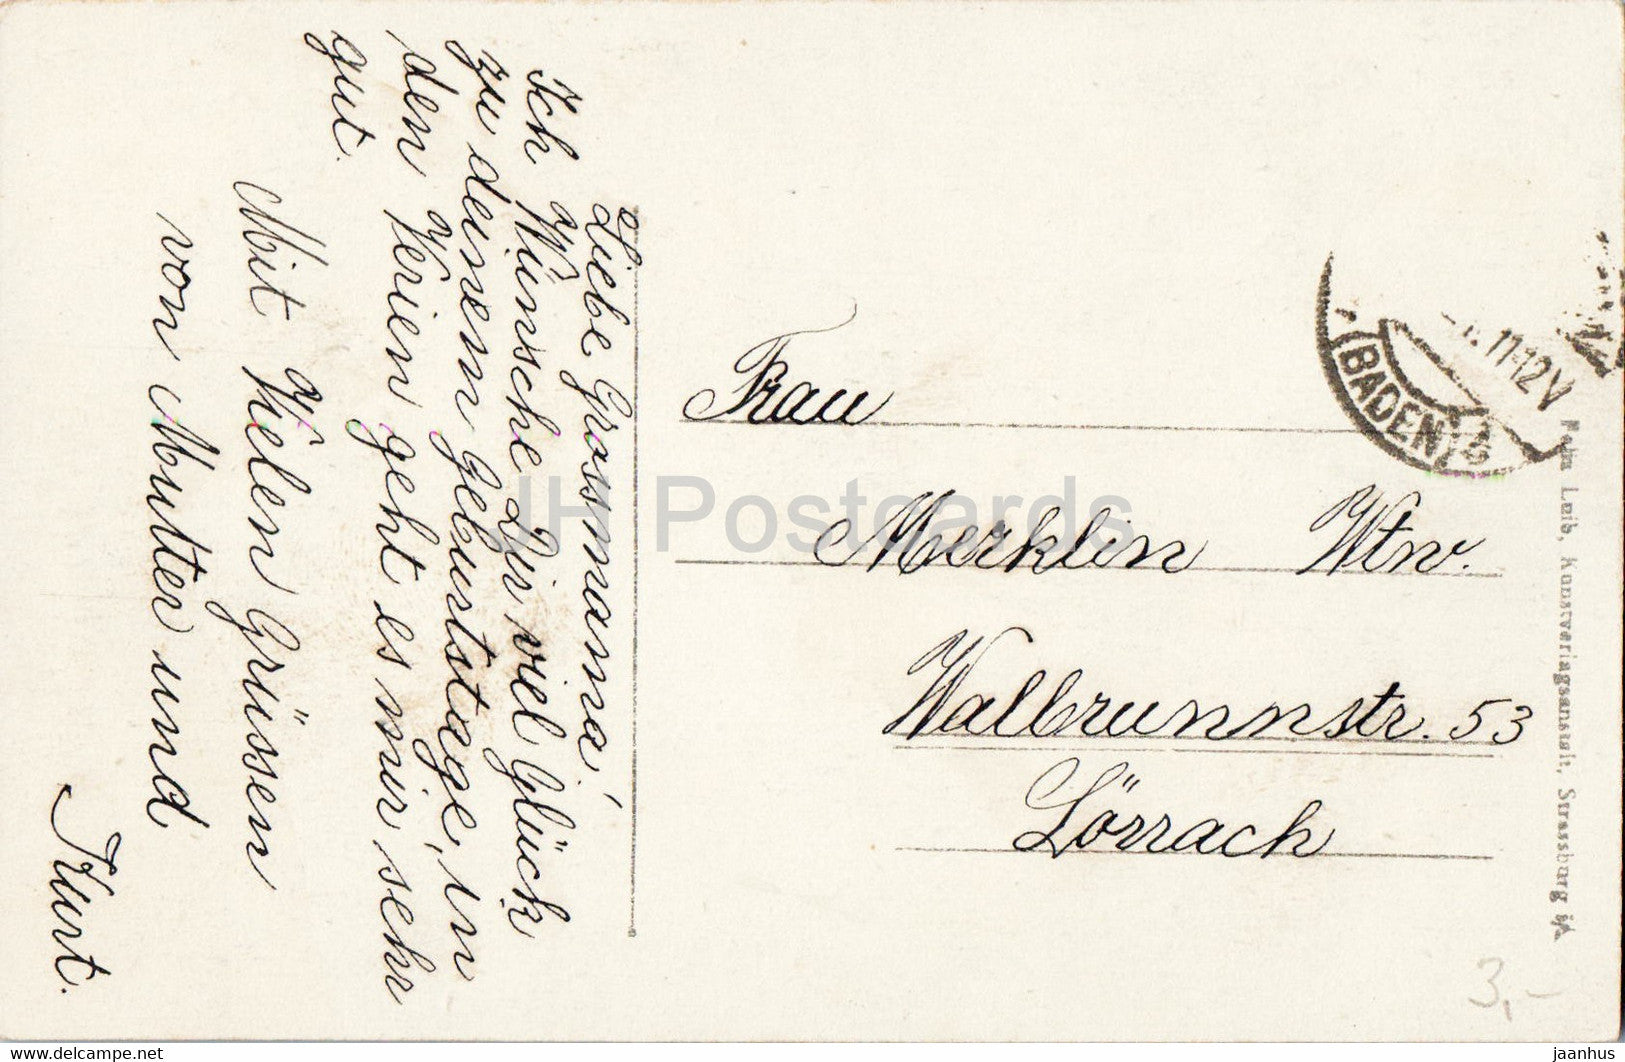 Liebe Grossmama,
Ich Wünsche Dir viel Glück
zu deinem Geburtstage, in
den Verien geht es mir sehr
gut.
Mit Vielen Grüssen
von Mutter und
Kurt.
Frau
Merklin Wtw.
Walbrunnstr. 53
Lörrach
(BADEN)
11-12V
Luib, Kunstverlagsanstalt, Strassburg i/A
3,-
JH Postcards
https://www.jhpostcards.com
jaanhus